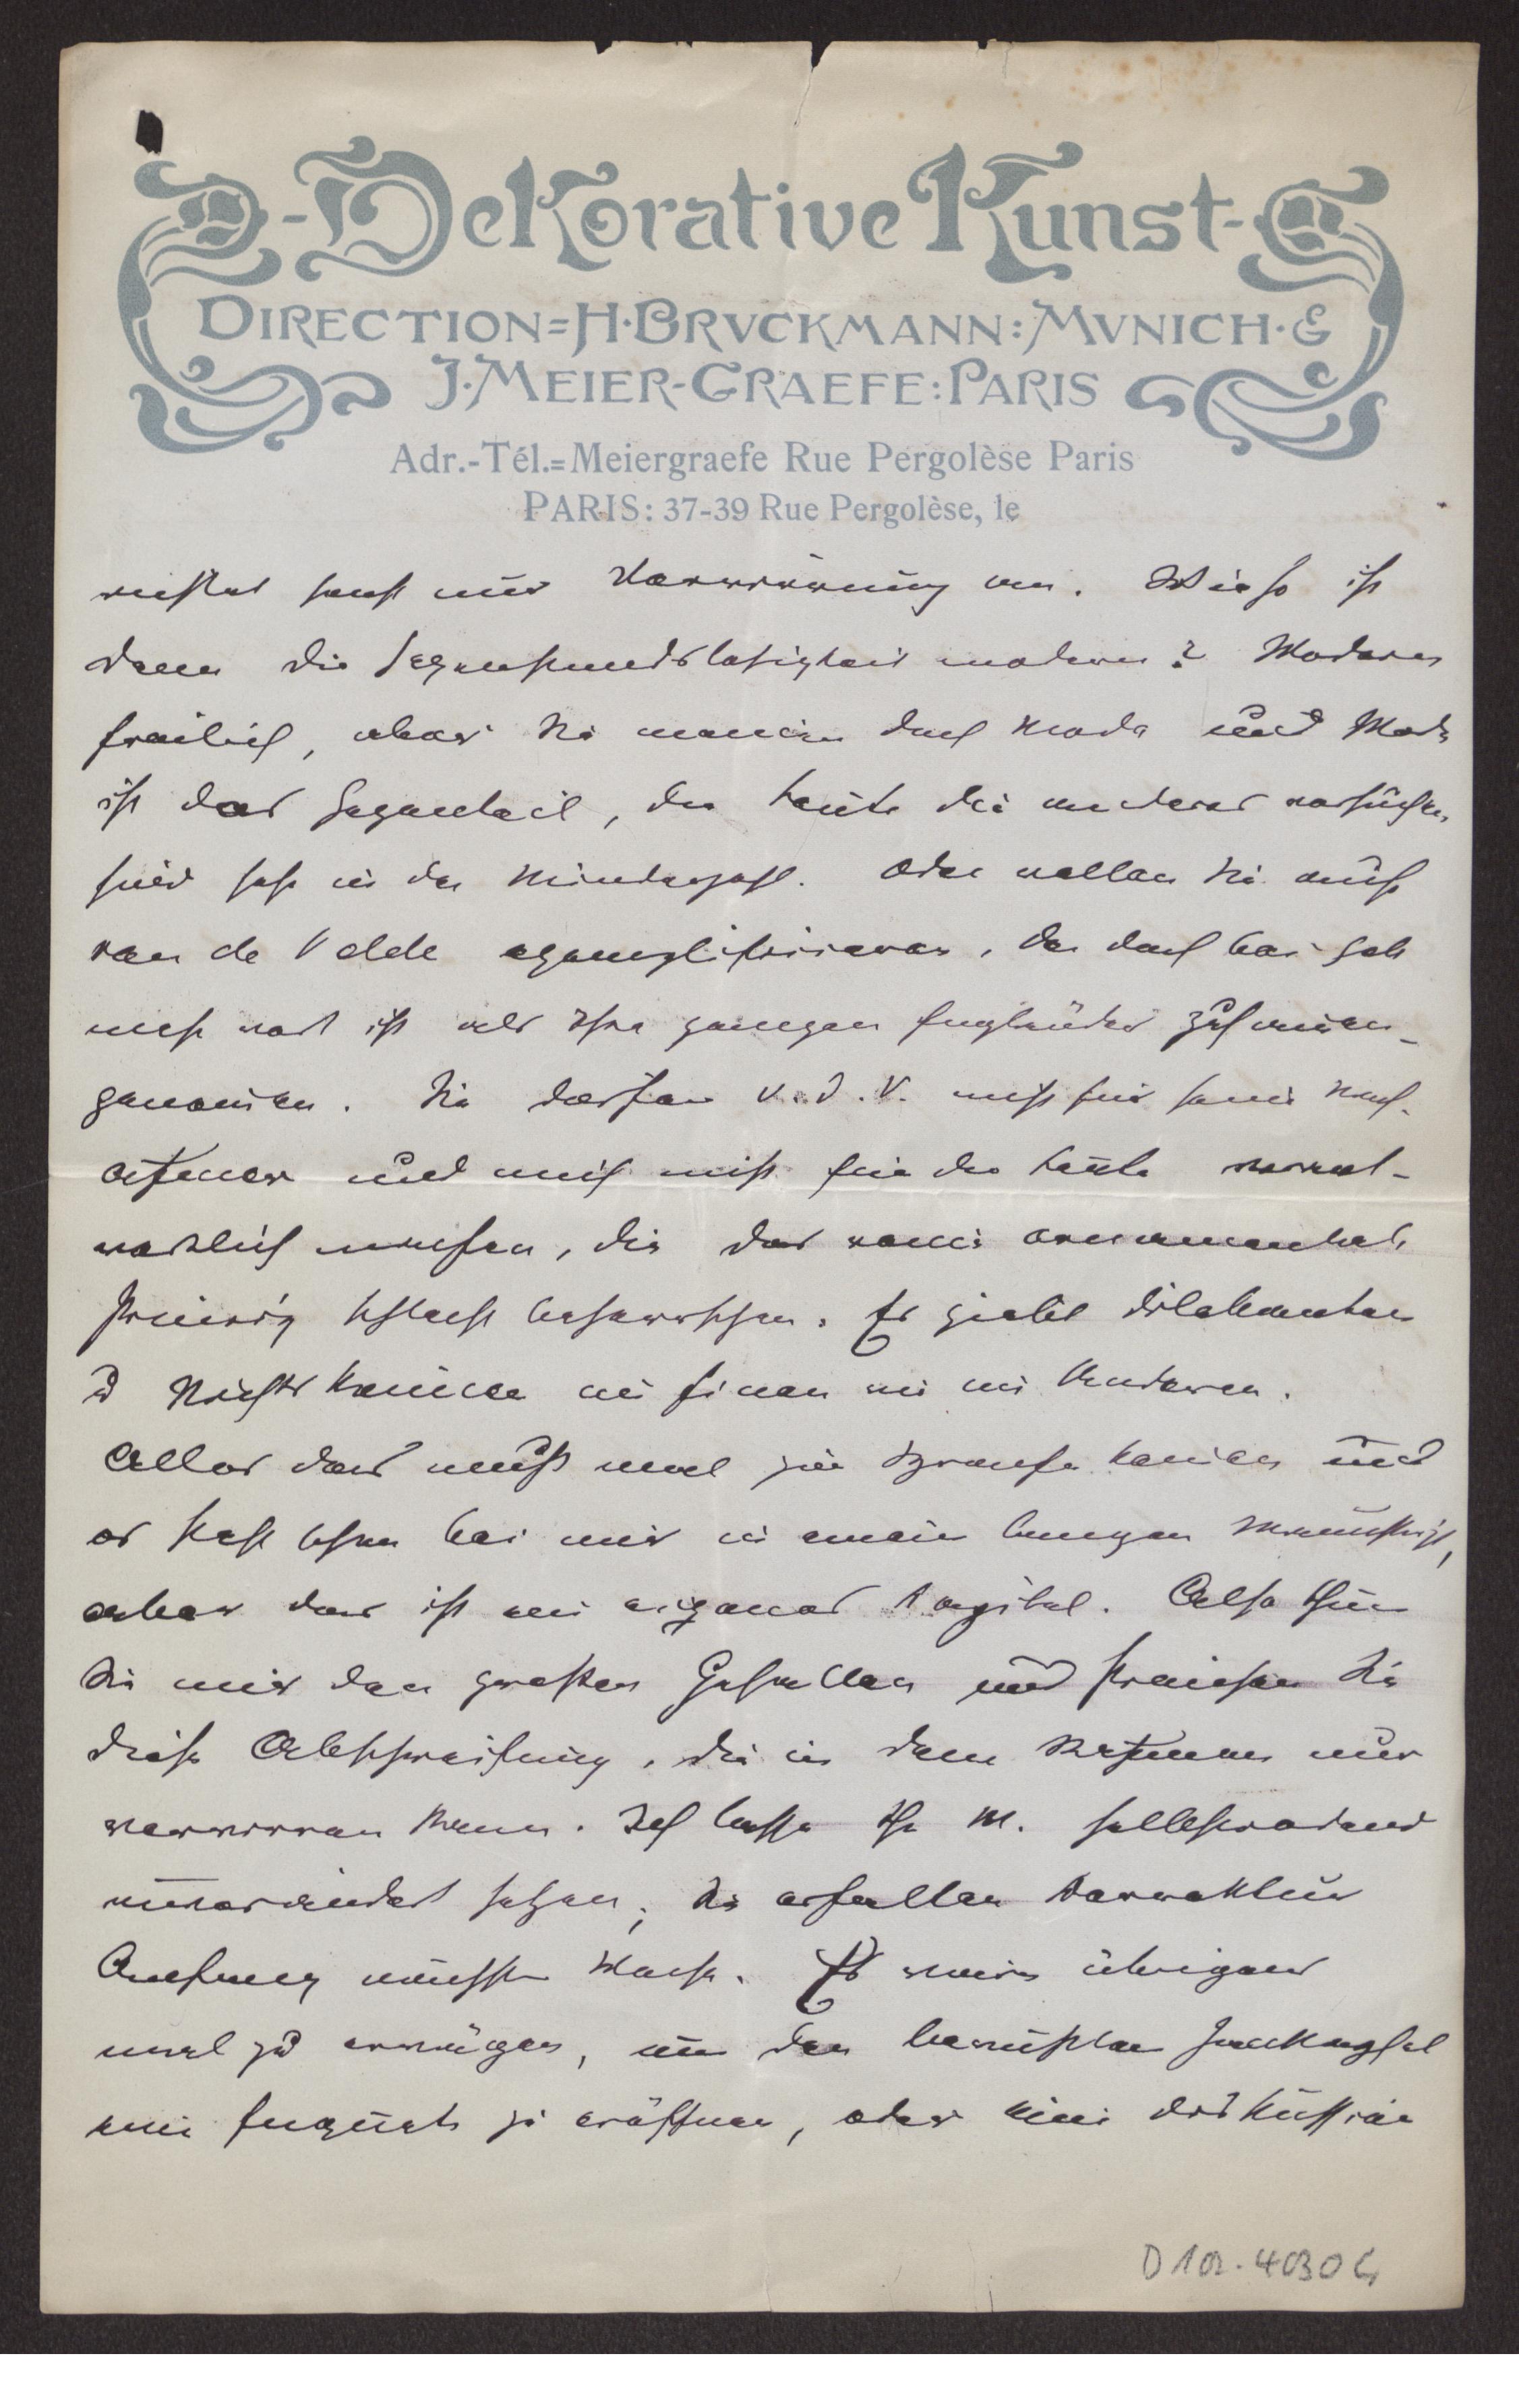 Dekorative Kunst
DIRECTION=H·BRVCKMANN:MVNICH·&
J·MEIER-GRAEFE:PARIS
Adr.-Tél.=Meiergraefe Rue Pergolèse Paris
PARIS: 37-39 Rue Pergolèse, le
richtet sonst nur Verwirrung an. Wieso ist
denn die Gegenstandslosigkeit modern? Modern
freilich, aber Sie meinen doch Mode und Mode
ist das Gegenteil, die Leute die anderes versuchen,
sind fast in der Minderzahl. Oder wollen Sie auf
van de Velde exemplifizieren, der doch bei Gott
mehr wert ist als Ihre ganzen Engländer zusammen-
genommen. Sie dürfen v. d. V. nicht für seine Nach-
ahmer und mich nicht für die Leute verant-
wortlich machen, die das rein ornamentale
Prinzip schlecht beherrschen. Es giebt Dilettanten
u Nichtskönner im Einen wie im Anderen.
Alles das muß mal zur Sprache kommen und
es steht schon bei mir in einem langen Manuskript,
aber das ist ein eigenes Kapitel. Also thun
Sie mir den großen Gefallen und streichen Sie
diese Abschweifung, die in dem Rahmen nur
verwirren kann. Ich lasse Ihr M. selbstredend
unverändert setzen, Sie erhalten Korrektur
Anfang nächster Woche. Es wäre übrigens
mal zu erwägen, um den bewußten
eine Enquete zu eröffnen, oder eine Diskussion
D 102-4030 G